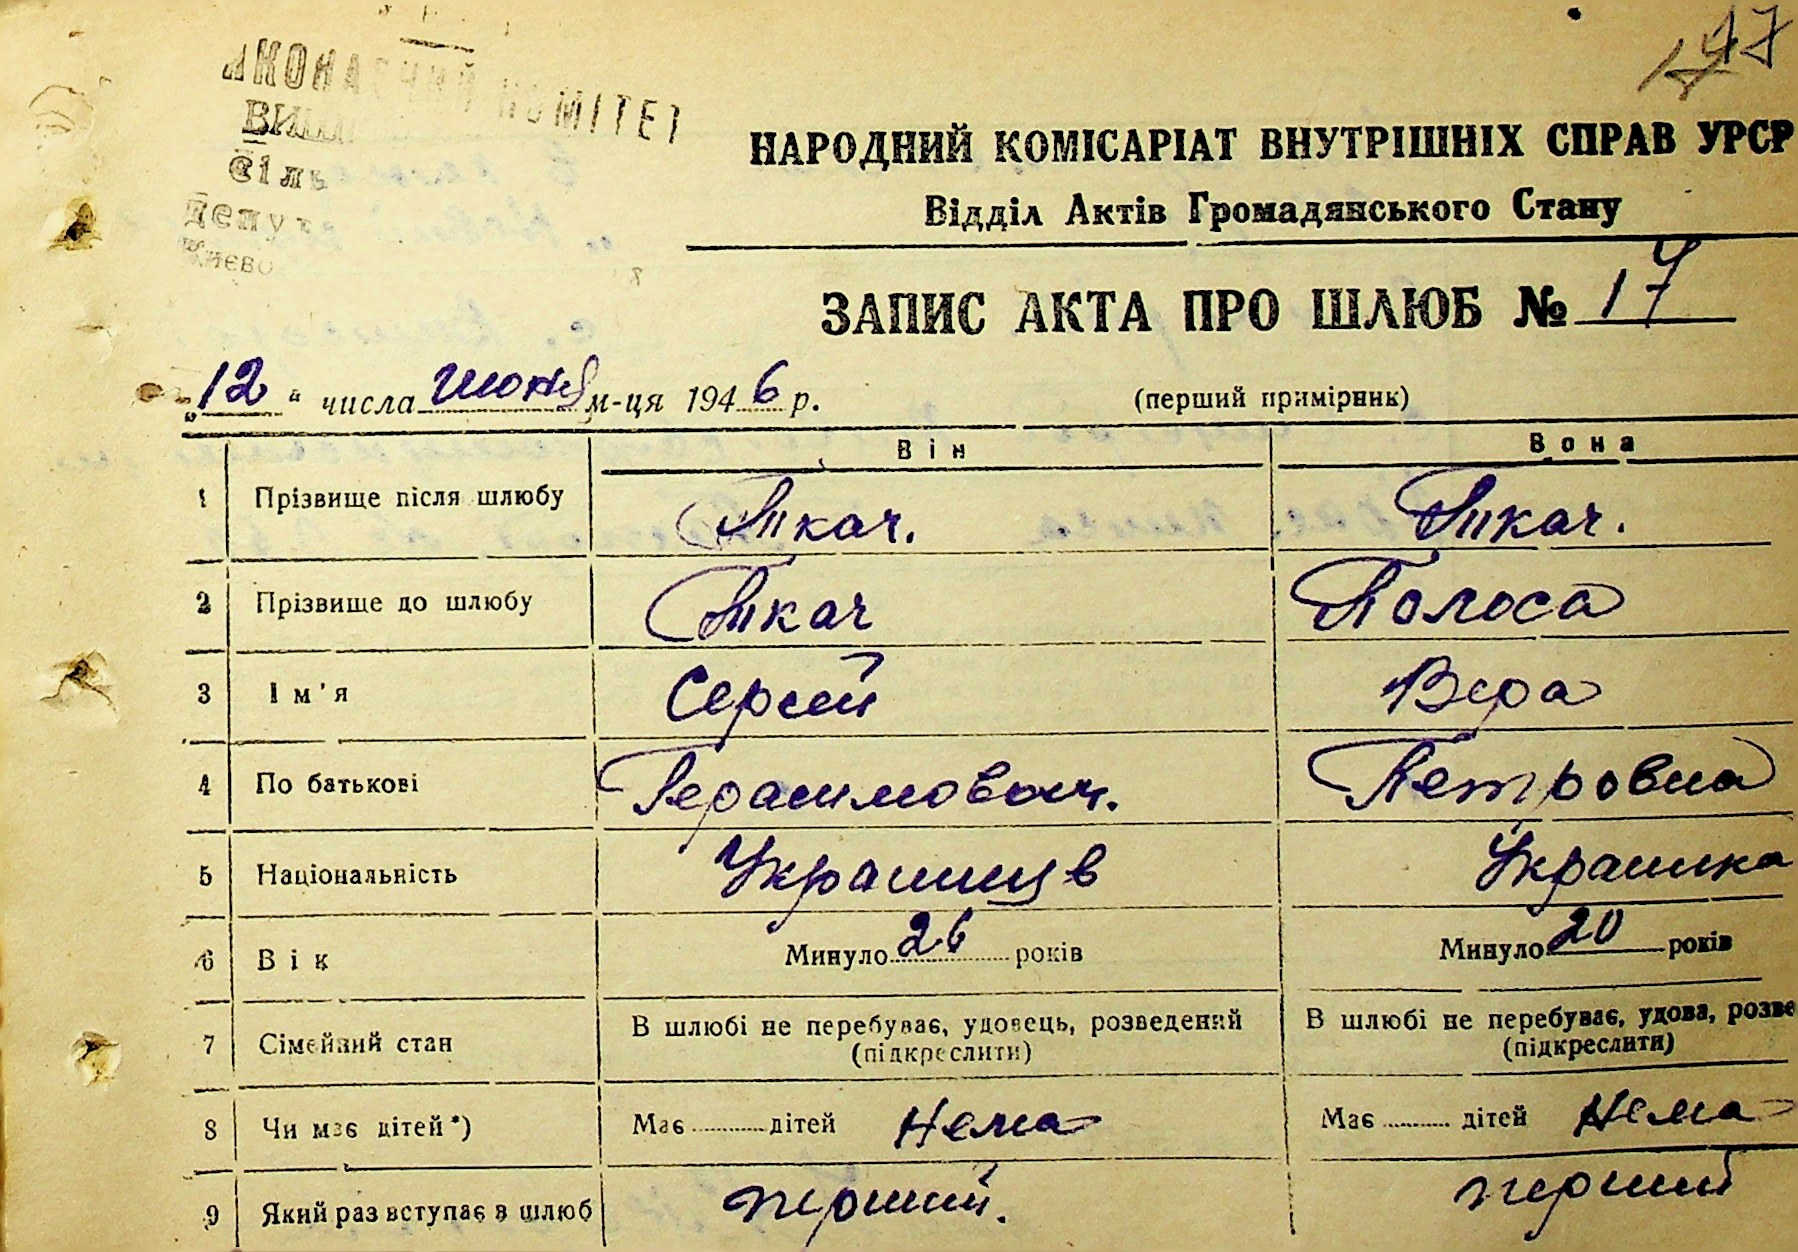 КОМІТЕТ
Сіль
Депут
Києво
НАРОДНИЙ КОМІСАРІАТ ВНУТРІШНІХ СПРАВ УРСР
Відділ Актів Громадянського Стану
ЗАПИС АКТА ПРО ШЛЮБ № 17
„12“ числа июня м-ця 1946 р. (перший примірник)
Він Вона
1 Прізвище після шлюбу Ткач. Ткач.
2 Прізвище до шлюбу Ткач Полоса
3 Ім'я Сергей Вера
4 По батькові Герасимович. Петровна
5 Національність Украинцв Украинка
6 Вік Минуло 26 років Минуло 20 років
7 Сімейний стан В шлюбі не перебуває, удовець, розведений В шлюбі не перебуває, удова, розве
(підкреслити) (підкреслити)
8 Чи має дітей*) Має дітей Нема Має дітей Нема
9 Який раз вступає в шлюб перший. перший